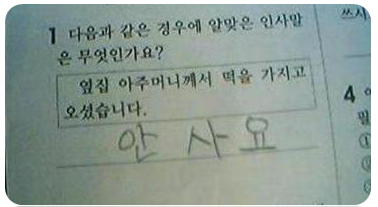 쓰시
1 다음과 같은 경우에 알맞은 인사말
은 무엇인가요?
옆집 아주머니께서 떡을 가지고
오셨습니다.
안 사 요
4
①